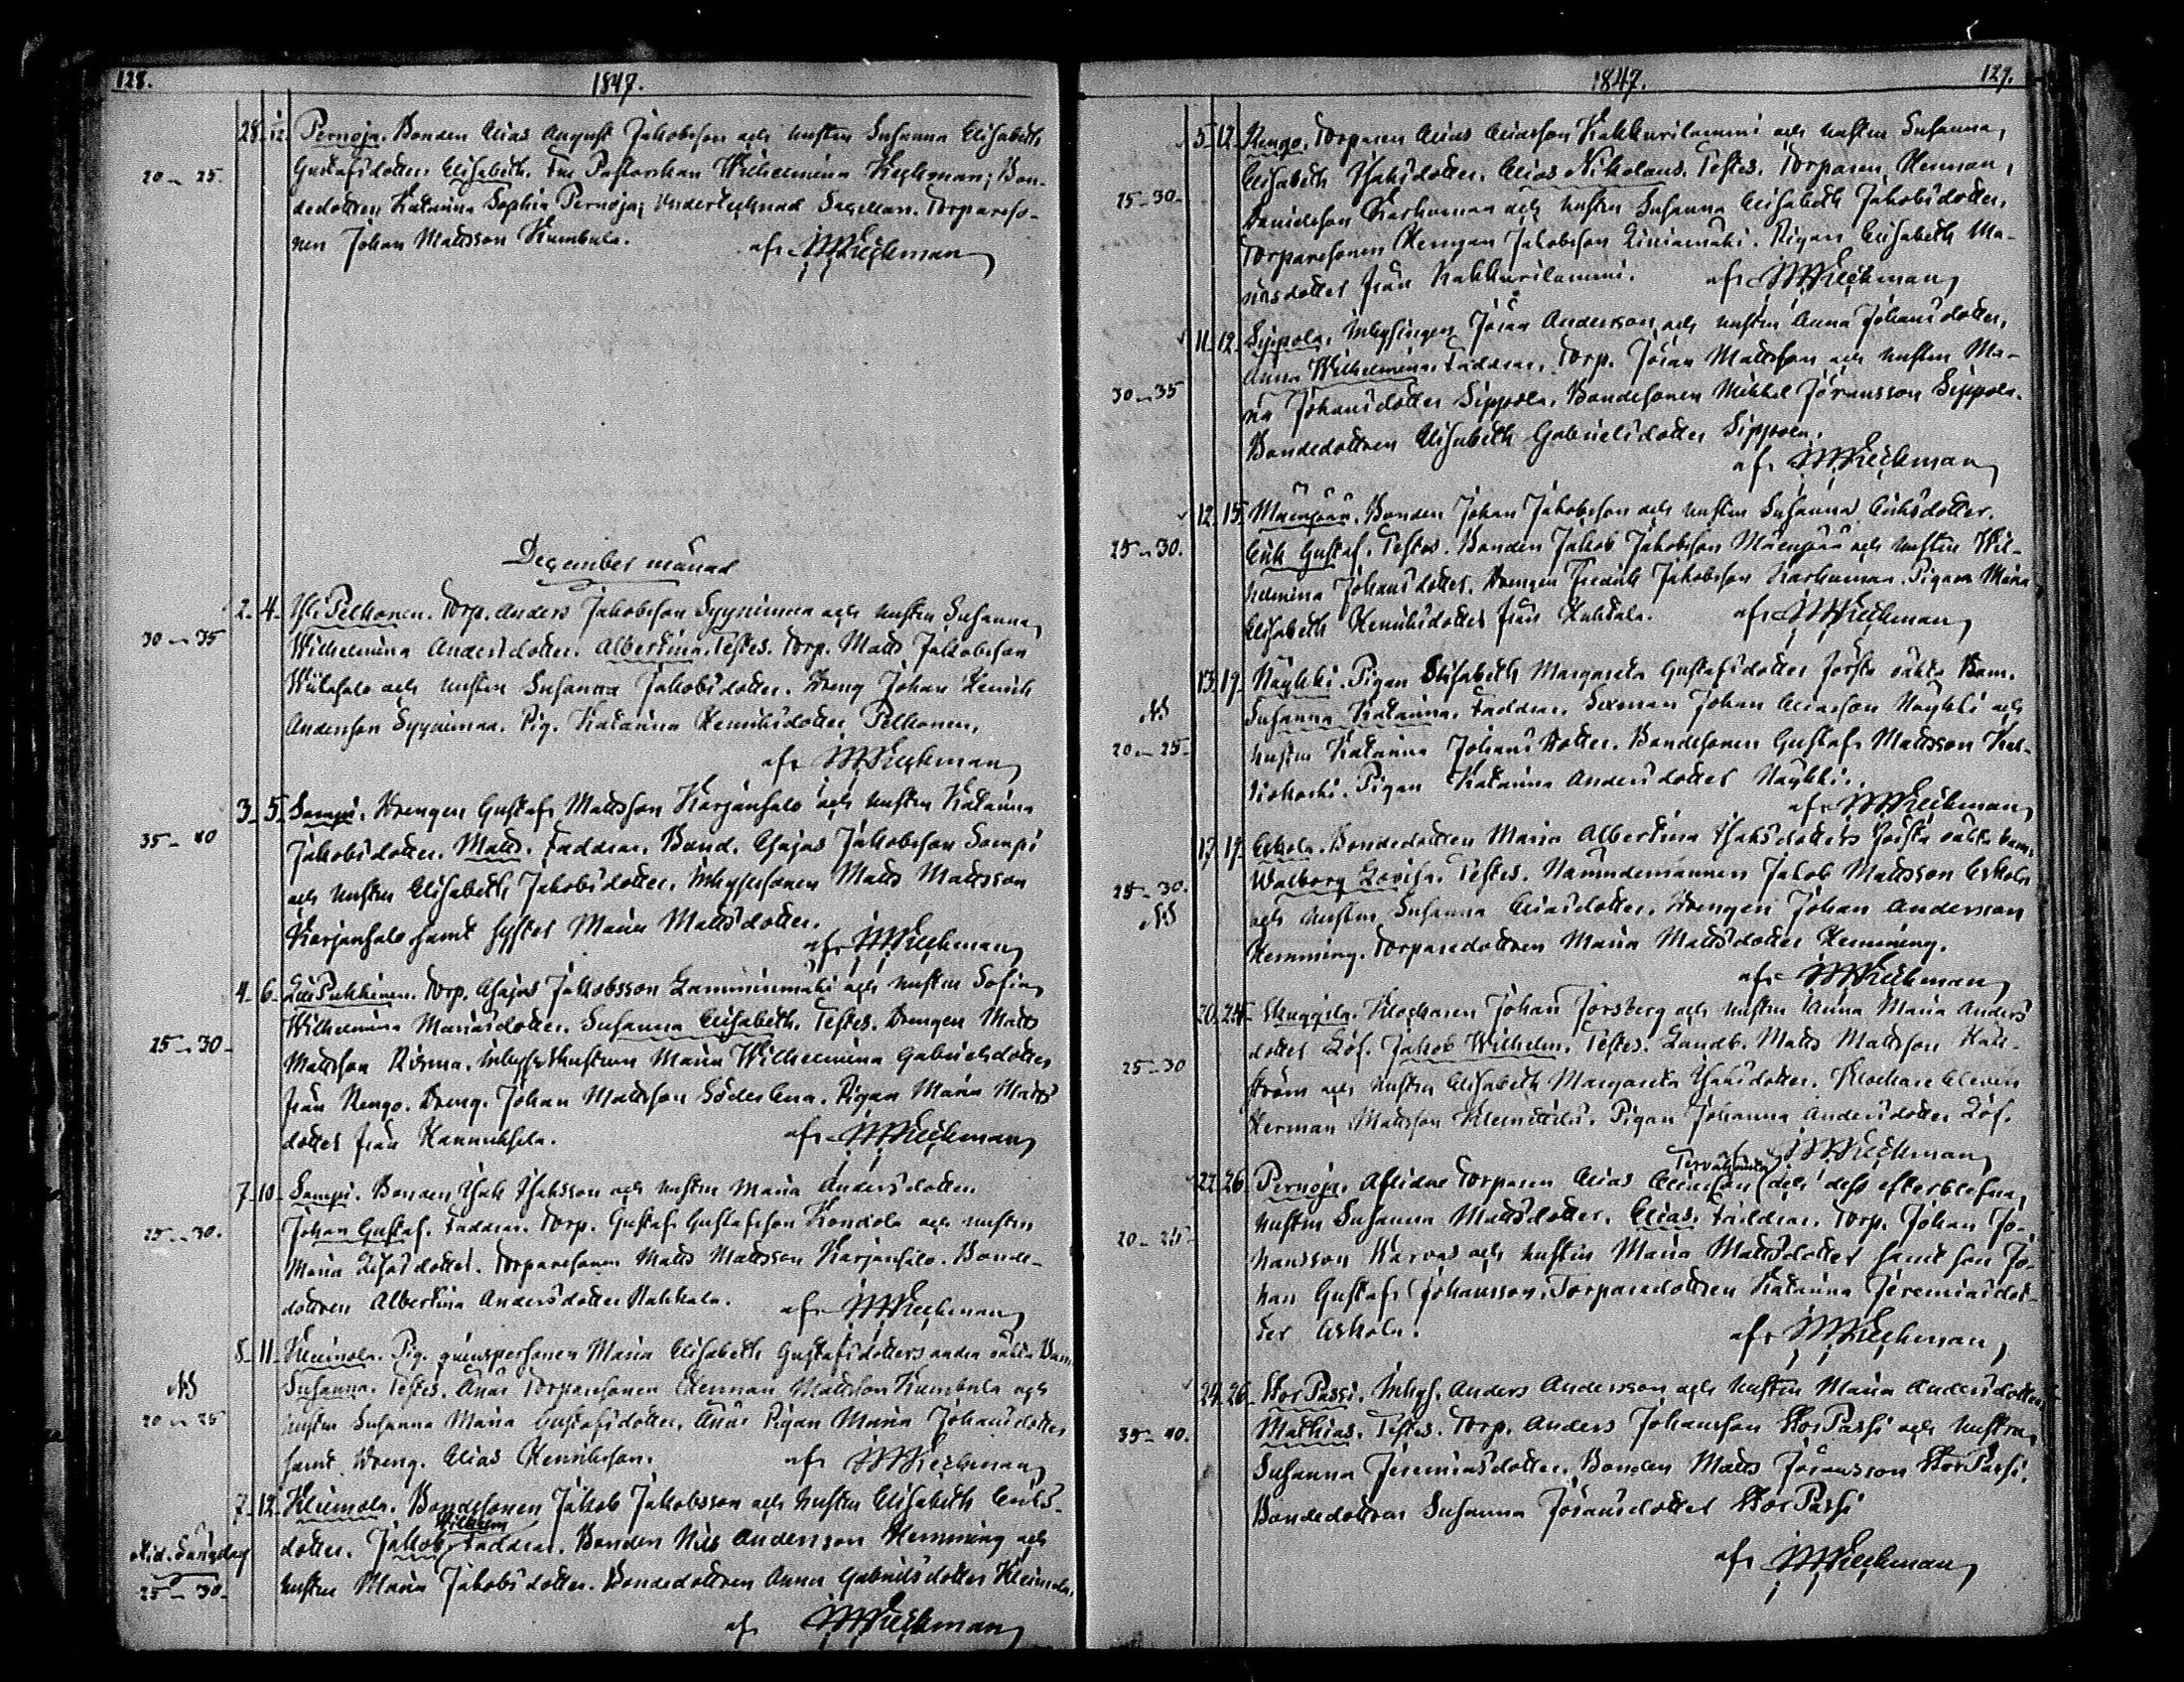 128.
1847.
28. 12. Pernoja. Bonden Elias August Jakobsson och hustru Susanna Elisabeth
20 – 25. Gustafsdotter. Elisabeth. Fru Pastorskan Wilhelmina Keckman; Bon-
dedottren Katarina Sophia Pernoja; Undertecknad Torpareso-
nen Johan Mattsson Kumbula. af
December månad
2. 4. Pelkonen. Torp. Anders Jakobsson Syynimaa och hustru Susanna
30 – 35 Wilhelmina Andersdotter. Albertina. Testes. Torp. Matts Jakobsson
och hustru Susanna Jakobsdotter. Dreng Johan Henrik
Andersson Syynimaa. Pig. Katarina Henriksdotter Pelkonen.
af
3. 5. Sampi. Drengen Gustaf Mattsson Karjansalo och hustru Katarina
35 – 40 Jakobsdotter. Matts. Faddrar. Bond. Esajas Jakobsson Sampi
och hustru Elisabeth Jakobsdotter. Inhysesonen Matts Mattsson
Karjansalo samt syster Maria Mattsdotter.
af
4. 6. Torp. Esajas Jakobsson Lamminmäki och hustru Sofia
Wilhelmina Mariasdotter. Susanna Elisabeth. Testes. Drengen Matts
25 – 30 – Mattsson hustrun Maria Wilhelmina Gabrielsdotter
från Rengo. Dreng. Johan Mattsson Söderlena. Pigan Maria Matts
dotter från Hannuksela. af
7. 10. Sampi. Bonden Isak Isaksson och hustru Maria Andersdotter.
25 – 30. Johan Gustaf. Faddrar. Torp. Gustaf Gustafsson Kondola och hustru
Maria dotter. Torparesonen Matts Mattsson Karjansalo. Bonde-
dottren Albertina Andersdotter Rakkala. af
8. 11. Kleimola. Pig. qvinspersonen Maria Elisabeth Gustafsdotters andra oäkta Barn
NB Susanna. Testes. Torparesonen Herman Mattsson Kumbula och
20 – 25 hustru Susanna Maria Gustafsdotter. Pigan Maria Johansdotter
samt Dreng. Elias Henriksson. af
7. 12. Kleimola. Bondesonen Jakob Jakobsson och hustru Elisabeth Eriks-
Wilhelm
dotter. Jakob Faddrar. Bonden Nils Andersson Hemming och
25 – 30. hustru Maria Jakobsdotter. Bondedottren Anna Gabrielsdotter Kleimola.
af
1847.
129.
5. 12. Rengo. Torparen Elias Eliasson Kakkurilammi och hustru Susanna
Elisabeth Isaksdotter. Elias Nikolaus. Testes. Torparen Herman
25 – 30 – Danielsson Karhumaa och hustru Susanna Elisabeth Jakobsdotter.
Torparesonen Herman Jakobsson Liniamäki. Pigan Elisabeth Ma-
riasdotter från Kakkurilammi. af
11. 12. Sippola. Inhysingen Jöran Andersson och hustru Anna Johansdotter.
Anna Wilhelmina. Faddrar. Torp. Jöran Mattsson och hustru Ma-
30 – 35 ria Johansdotter Sippola. Bondesonen Mikkel Jöransson Sippola.
Bondedottren Elisabeth Gabrielsdotter Sippola.
af
12. 15. Mäenpää. Bonden Johan Jakobsson och hustru Susanna Eriksdotter.
25 – 30. Erik Gustaf. Testes. Bonden Jakob Jakobsson Mäenpää och hustru Wil-
helmina Johansdotter. Drengen Fredrik Jakobsson Karhumaa. Pigan Maria
Elisabeth Henriksdotter från Huhdala. af
13. 19. Näykki. Pigan Elisabeth Margareta Gustafsdotter första oäkta Barn.
NB Susanna Katarina. Faddrar. Sexman Johan Eliasson Näykki och
20 – 25 – hustru Katarina Johansdotter. Bondesonen Gustaf Mattsson
Pigan Katarina Andersdotter Näykki.
af
17. 19. Eskola. Bondedottren Maria Albertina Isaksdotters första oäkta barn.
25 – 30. Walborg Lovisa. Testes. Nämndemannen Jakob Mattsson Eskola
NB och hustru Susanna Eliasdotter. Drengen Johan Andersson
Hemming. Torparedottren Maria Mattsdotter Hemming.
af
20. 24. Skuggila. Klockaren Johan Forsberg och hustru Anna Maria Anders
dotter Löf. Jakob Wilhelm. Testes. Landb. Matts Mattsson
25 – 30 ström och hustru Elisabeth Margareta Isaksdotter. Klockare Eleven
Herman Mattsson Pigan Johanna Andersdotter Löf.
af
22. 26. Pernoja. Aflidne Torparen Elias Eliasson och dess efterblefna
20 – 25 – hustru Susanna Mattsdotter. Elias. Faddrar. Torp. Johan Jo-
hansson Warvas och hustru Maria Mattsdotter samt son Jo-
han Gustaf Johansson. Torparedottren Katarina Jeremiasdot-
ter Eskola. af
24. 26. Stor Passi. Inhys. Anders Andersson och hustru Maria Andersdotter
35 – 40. Mathias. Testes. Torp. Anders Johansson Stor Passi och hustru
Susanna Jeremiasdotter. Bonden Matts Jöransson Stor Passi.
Bondedottren Susanna Jöransdotter Stor Passi
af